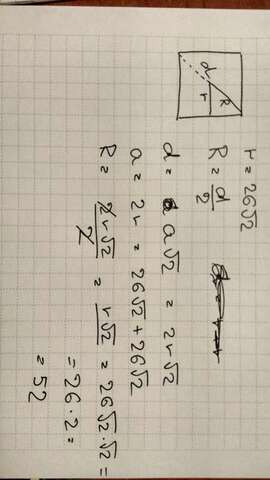 d
r
R
r = 26√2
R = d/2
d = a√2 = 2r√2
a = 2r = 26√2 + 26√2
R = 2r√2/2 = r√2 = 26√2 · √2 =
= 26 · 2 =
= 52